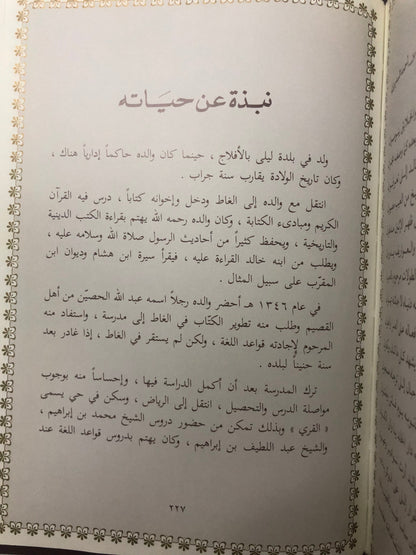 نبذة عن حيَاته
ولد في بلدة ليلى بالأفلاج ، حينما كان والده حاكماً إدارياً هناك ،
وكان تاريخ الولادة يقارب سنة جراب .
انتقل مع والده إلى الغاط ودخل وإخوانه كتاباً ، درس فيه القرآن
الكريم ومبادىء الكتابة ، وكان والده رحمه الله يهتم بقراءة الكتب الدينية
والتاريخية ، ويحفظ كثيراً من أحاديث الرسول صلاة الله وسلامه عليه ،
ويطلب من ابنه خالد القراءة عليه ، فيقرأ سيرة ابن هشام وديوان ابن
المقرّب على سبيل المثال .
في عام ١٣٤٦ هـ أحضر والده رجلاً اسمه عبد الله الحصيّن من أهل
القصيم وطلب منه تطوير الكتّاب في الغاط إلى مدرسة ، واستفاد منه
المرحوم لإجادته قواعد اللغة ، ولكن لم يستقر في الغاط ، إذا غادر بعد
سنة حنيناً لبلده .
ترك المدرسة بعد أن أكمل الدراسة فيها ، وإحساساً منه بوجوب
مواصلة الدرس والتحصيل ، انتقل إلى الرياض ، وسكن في حي يسمى
« القري » وبذلك تمكن من حضور دروس الشيخ محمد بن إبراهيم ،
والشيخ عبد اللطيف بن إبراهيم ، وكان يهتم بدروس قواعد اللغة عند
٢٢٧